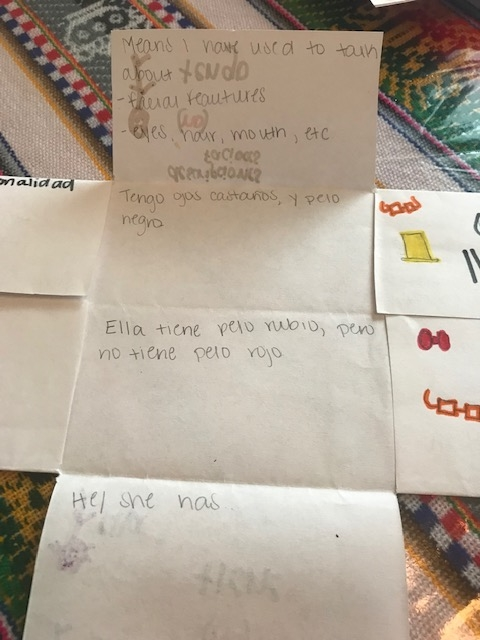 Means I have used to talk
about
- facial feautures
- eyes, hair, mouth, etc
onalidad
Tengo ojos castaños, y pelo
negro
Ella tiene pelo rubio, pero
no tiene pelo rojo
He/ she has